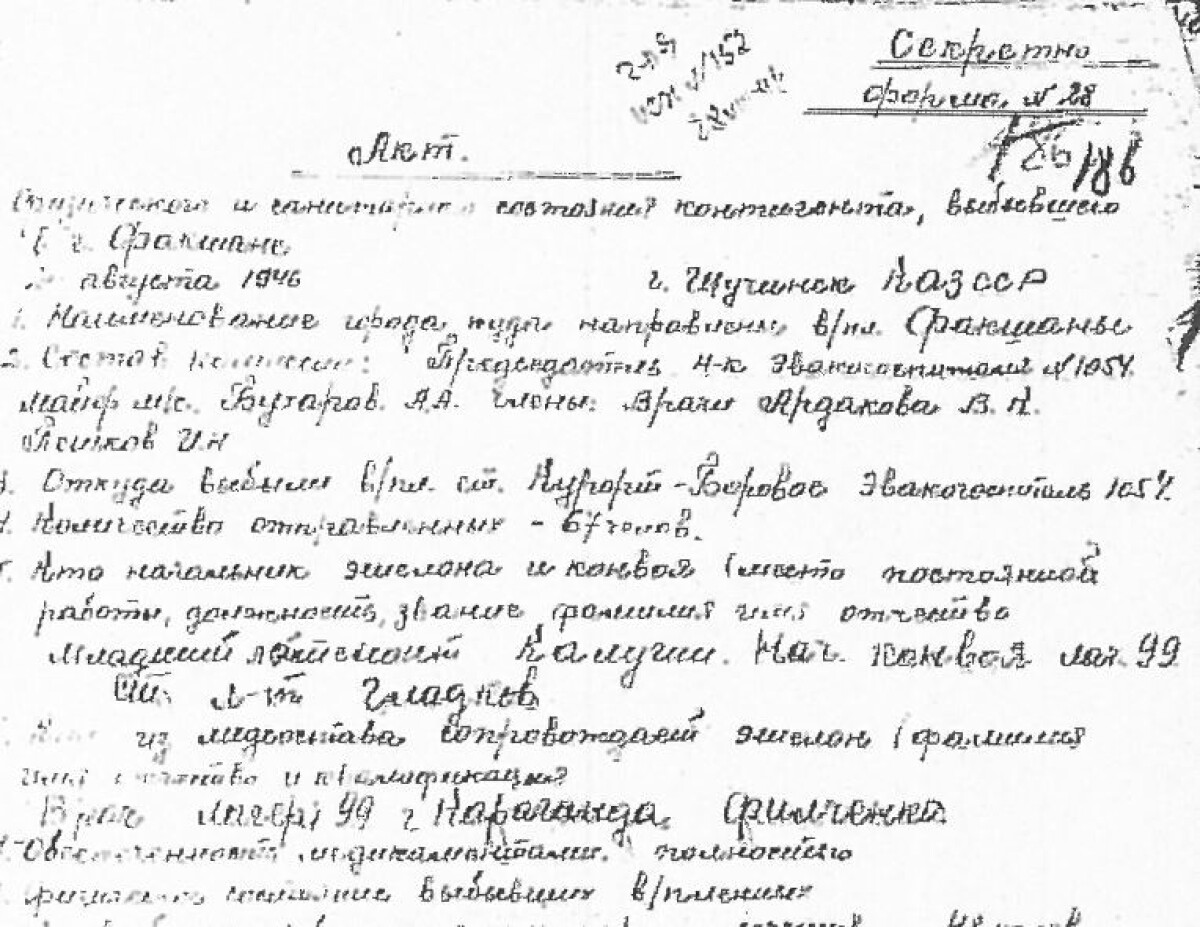 Секретно
форма N 28
186
Акт.
состояния контингента, выбывшего
г. Факшане
августа 1946 г. Щучинск КазССР
1. Наименование города куда направлены в/пл. Факшаны
2. Состав комиссии: Председатель Н-к Эвакогоспиталя N 1054
майор м/с. Бухаров. А.А. члены: Врачи Ардакова В.
И.Н
Откуда выбыли в/пл. ст. Курорт-Боровое Эвакогоспиталь 1054
4. Количество отправленных - 67 челов.
Кто начальник эшелона и конвоя (место постоянной
работы, должность, звание, фамилия имя отчество
Младший лейтенант Калугин. Нач. конвоя лаг. 99
Ст. л-т Гладков
из медсостава сопровождает эшелон (фамилия
имя отчество и квалификация
Врач лагеря 99 г Караганда Фильченко
Обеспеченность медикаментами. полностью
физическое состояние выбывших в/пленных